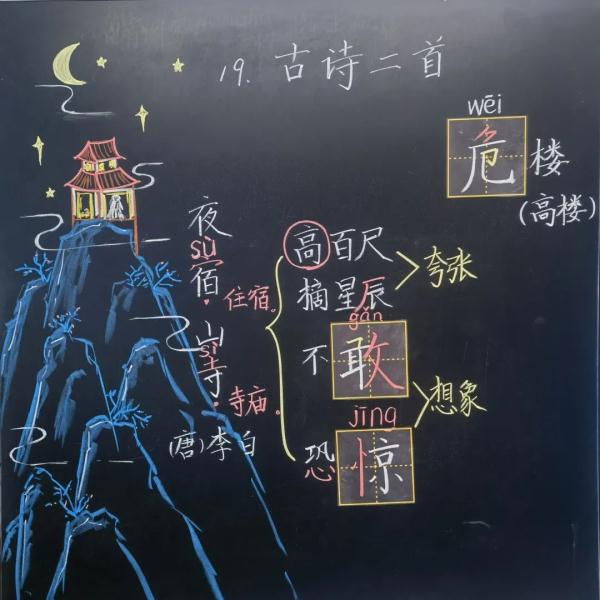 19. 古诗二首
wēi
危楼
(高楼)
夜
sù
宿 住宿。
山
sì
寺 寺庙。
(唐)李白
高百尺
摘星辰
夸张
gǎn
不敢
jīng
恐惊
想象